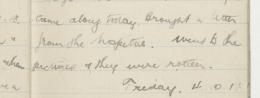 came along today. Brought a letter
from the hospital. Went to the
pictures & they were rotten.
Friday, 4 0.